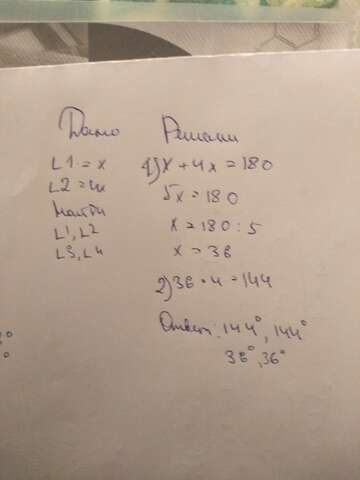 Дано
Решение
∠1 = x
∠2 = 4x
Найти
∠1, ∠2
∠3, ∠4
1) x + 4x = 180
5x = 180
x = 180 : 5
x = 36
2) 36 · 4 = 144
Ответ: 144°, 144°
36°, 36°